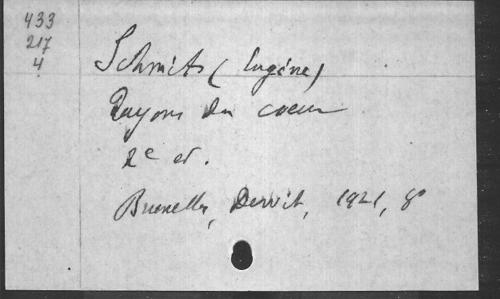 433
217
4
Schmits (Eugène)
Rayons du coeur
2e ed.
Bruxelles, Dewit, 1921, 8°